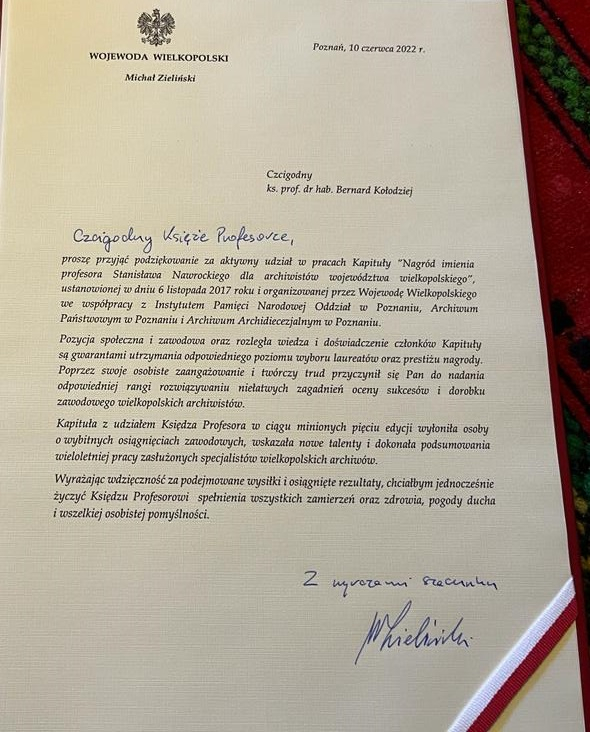 WOJEWODA WIELKOPOLSKI
Michał Zieliński
Poznań, 10 czerwca 2022 r.
Czcigodny
ks. prof. dr hab. Bernard Kołodziej
Czcigodny Księże Profesorze,
proszę przyjąć podziękowanie za aktywny udział w pracach Kapituły "Nagród imienia
profesora Stanisława Nawrockiego dla archiwistów województwa wielkopolskiego",
ustanowionej w dniu 6 listopada 2017 roku i organizowanej przez Wojewodę Wielkopolskiego
we współpracy z Instytutem Pamięci Narodowej Oddział w Poznaniu, Archiwum
Państwowym w Poznaniu i Archiwum Archidiecezjalnym w Poznaniu.
Pozycja społeczna i zawodowa oraz rozległa wiedza i doświadczenie członków Kapituły
są gwarantami utrzymania odpowiedniego poziomu wyboru laureatów oraz prestiżu nagrody.
Poprzez swoje osobiste zaangażowanie i twórczy trud przyczynił się Pan do nadania
odpowiedniej rangi rozwiązywaniu niełatwych zagadnień oceny sukcesów i dorobku
zawodowego wielkopolskich archiwistów.
Kapituła z udziałem Księdza Profesora w ciągu minionych pięciu edycji wyłoniła osoby
o wybitnych osiągnięciach zawodowych, wskazała nowe talenty i dokonała podsumowania
wieloletniej pracy zasłużonych specjalistów wielkopolskich archiwów.
Wyrażając wdzięczność za podejmowane wysiłki i osiągnięte rezultaty, chciałbym jednocześnie
życzyć Księdzu Profesorowi spełnienia wszystkich zamierzeń oraz zdrowia, pogody ducha
i wszelkiej osobistej pomyślności.
Z wyrazami szacunku
MZieliński